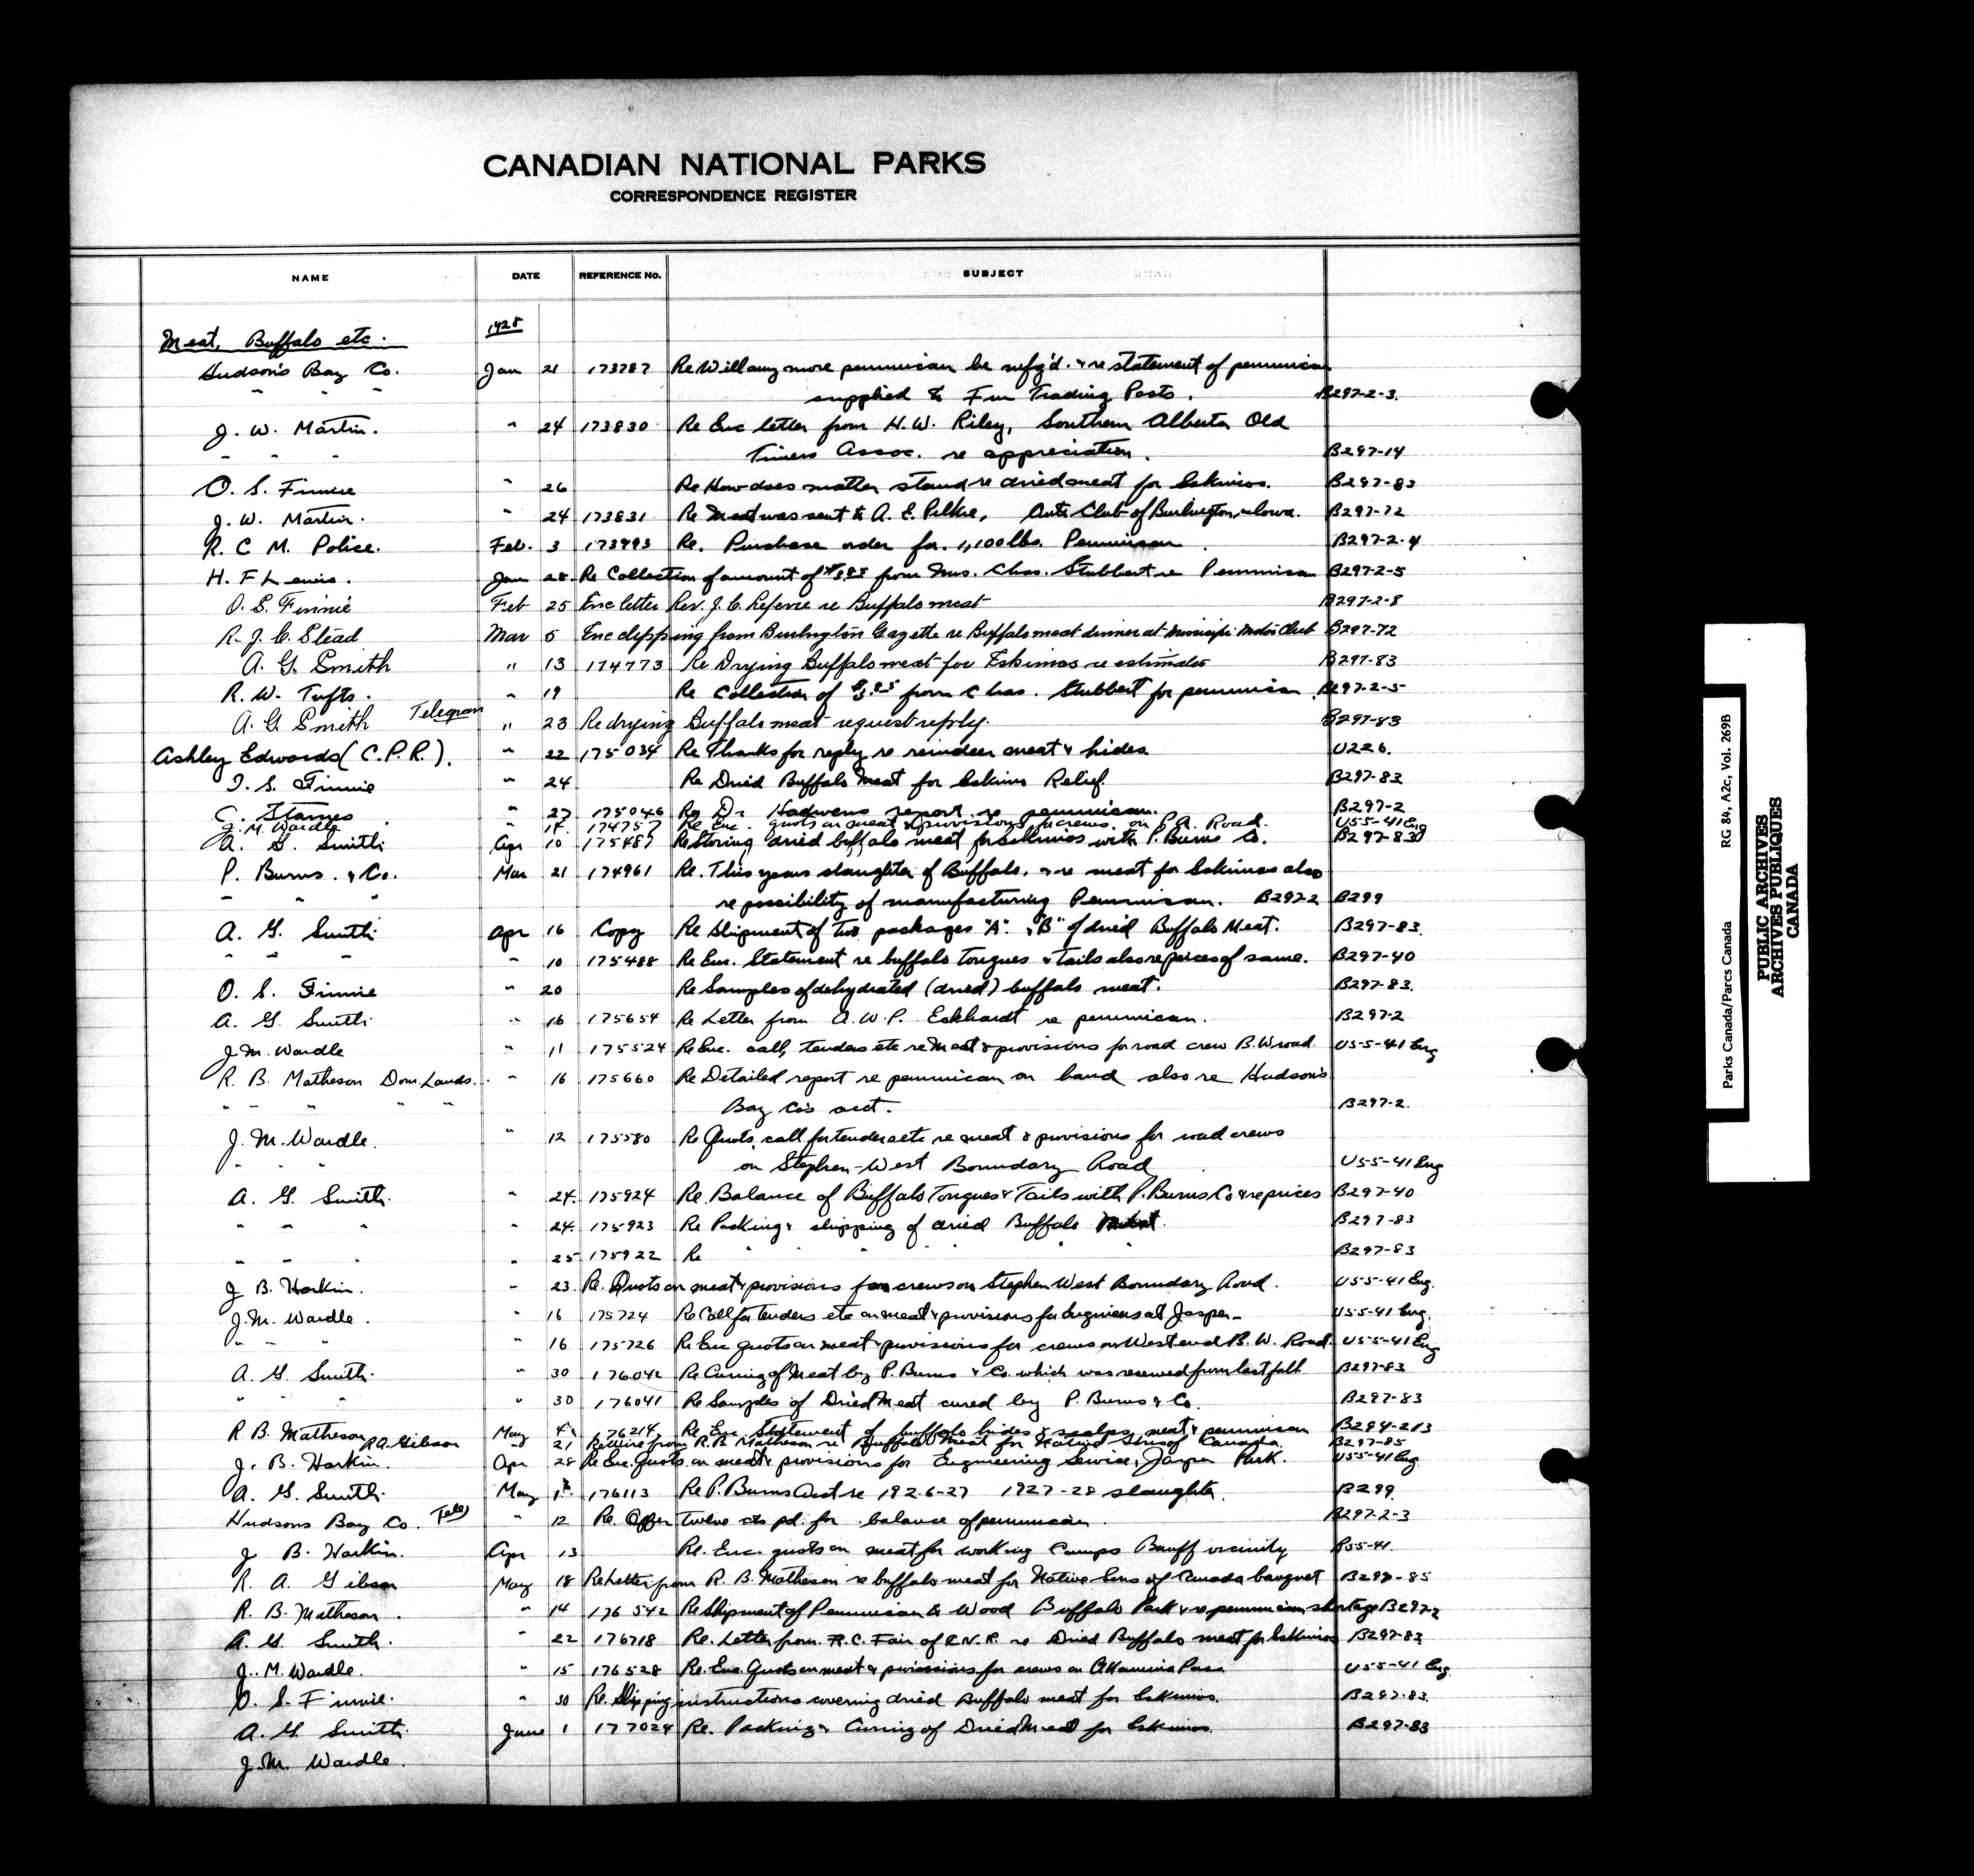 CANADIAN NATIONAL PARKS
CORRESPONDENCE REGISTER
NAME DATE REFERENCE No. SUBJECT
Meat, Buffalo etc. 1928
Hudson's Bay Co. Jan 21 173787 Re Will any more pemmican be mfg'd. & re statement of pemmican
" " " supplied to Fur Trading Posts. B297-2-3.
J. W. Martin. " 24 173830 Re Enc letter from H. W. Riley, Southern Alberta Old
" " " Timers Assoc. re appreciation. B297-14
O. S. Finnie " 26 Re How does matter stand re dried meat for Eskimos. B297-83
J. W. Martin. " 24 173831 Re Meat was sent to A. E. Pelkie, Auto Club of Burlington, Iowa. B297-72
R. C M. Police. Feb. 3 173993 Re. Purchase order for 1,100 lbs. Pemmican. B297-2-4
H. F Lewis. Jan 28 Re Collection of amount of from Mrs. Chas. Stubbert re Pemmican B297-2-5
O. S. Finnie Feb 25 Enc letter Rev. J. C. Lefevre re Buffalo meat B297-2-8
R. J. C. Stead Mar 5 Enc clipping from Burlington Gazette re Buffalo meat dinner at Motor Club B297-72
A. G. Smith " 13 174773 Re Drying Buffalo meat for Eskimos re estimates B297-83
R. W. Tufts. " 19 Re Collection of from Chas. Stubbert for pemmican. B297-2-5
A. G Smith Telegram " 23 Re drying Buffalo meat request reply. B297-83
Ashley Edwards (C. P. R.). " 22 175034 Re Thanks for reply re reindeer meat & hides U226.
O. S. Finnie " 24 Re Dried Buffalo Meat for Eskimo Relief. B297-83
C. Starnes " 27 175046 Re Dr Hadwens report re pemmican. B297-2
J. M. Wardle " 17 174757 Re Enc. quots on meat & provisions for crews on P.A. Road. U55-41 Eng
A. G. Smith Apr 10 175487 Re Storing dried buffalo meat for Eskimos with P. Burns Co. B297-83
P. Burns. & Co. Mar 21 174961 Re. This years slaughter of Buffalo. & re meat for Eskimos also
" " " re possibility of manufacturing Pemmican. B297-2 B299
A. G. Smith Apr 16 Copy Re Shipment of two packages "A" & "B" of dried Buffalo Meat. B297-83.
" " " " 10 175488 Re Enc. Statement re buffalo tongues & tails also re prices of same. B297-40
O. S. Finnie " 20 Re Samples of dehydrated (dried) buffalo meat. B297-83.
A. G. Smith " 16 175654 Re Letter from A. W. P. Eckhardt re pemmican. B297-2
J. M. Wardle " 11 175524 Re Enc. call, tenders etc re Meat & provisions for road crew B.W road. U55-41 Eng
R. B. Matheson Dom. Lands. " 16 175660 Re Detailed report re pemmican on hand also re Hudson's
" " " " " Bay Co's acct. B297-2.
J. M. Wardle. " 12 175580 Re Quots, call for tenders etc re meat & provisions for road crews
" " " on Stephen-West Boundary Road U55-41 Eng
A. G. Smith. " 24. 175924 Re. Balance of Buffalo Tongues & Tails with P. Burns Co & re prices B297-40
" " " " 24. 175923 Re Packing & shipping of dried Buffalo Meat. B297-83
" " " " 25 175922 Re " " " " " B297-83
J B. Harkin. " 23 Re. Quots on meat & provisions for crews on Stephen West Boundary Road. U55-41 Eng.
J. M. Wardle. " 16 175724 Re Call for tenders etc on meat & provisions for Engineers at Jasper- U55-41 Eng.
" " " " 16 175726 Re Enc quots on meat & provisions for crews on West end B. W. Road. U55-41 Eng
A. G. Smith. " 30 176042 Re Curing of Meat by P. Burns & Co. which was reserved from last fall B297-83
" " " " 30 176041 Re Samples of Dried Meat cured by P. Burns & Co. B297-83
R. B. Matheson May 4 176214 Re Enc. Statement of buffalo hides & scalps, meat & pemmican B294-213
R.A. Gibson " 21 Re Wire from R. B. Matheson re Buffalo Meat for Native Sons of Canada. B297-85
J. B. Harkin. Apr 28 Re Enc. Quots on meat & provisions for Engineering Service, Jasper Park. U55-41 Eng.
A. G. Smith. May 1 176113 Re P. Burns Acct re 1926-27 1927-28 slaughter. B299.
Hudsons Bay Co. Tele " 12 Re. Offer twelve cts pd. for balance of pemmican. B297-2-3
J B. Harkin. Apr 13 Re. Enc. quots on meat for working Camps Banff vicinity R55-41.
R. A. Gibson May 18 Re Letter from R. B. Matheson re buffalo meat for Native Sons of Canada banquet B297-85
R. B. Matheson. " 14 176542 Re Shipment of Pemmican to Wood Buffalo Park & re pemmican shortage B297-2
A. G. Smith. " 22 176718 Re. Letter from R. C. Fair of C.N.R. re Dried Buffalo meat for Eskimos B297-83
J. M. Wardle. " 15 176528 Re. Enc. Quots on meat & provisions for crews on Akamina Pass U55-41 Eng.
O. S. Finnie. " 30 Re. Shipping instructions covering dried Buffalo meat for Eskimos. B297-83.
A. G. Smith. June 1 177024 Re. Packing & Curing of Dried Meat for Eskimos. B297-83
J. M. Wardle.
Parks Canada/Parcs Canada RG 84, A2c, Vol. 269B
PUBLIC ARCHIVES
ARCHIVES PUBLIQUES
CANADA